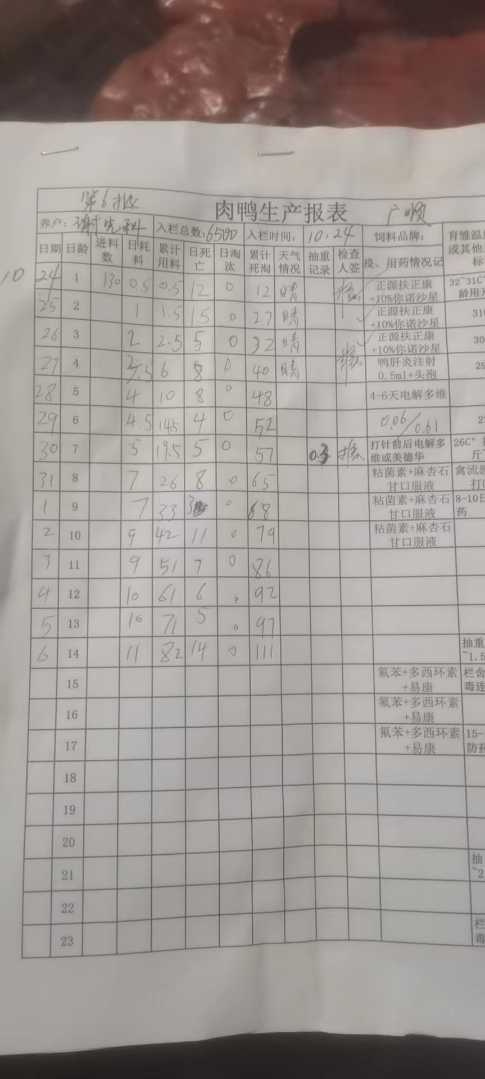 第6批
肉鸭生产报表 广顺
养户: 入栏总数:6500 入栏时间: 10.24 饲料品牌: 育雏温度
日期 日龄 进料数 日耗料 累计用料 日死亡 日淘汰 累计死淘 天气情况 抽重记录 检查人签 投、用药情况记 或其他 标
10 24 1 130 0.5 0.5 12 0 12 晴 正源扶正康+10%你诺沙星 32~31C°
25 2 1 1.5 15 0 27 晴 正源扶正康+10%你诺沙星 31
26 3 2 2.5 5 0 32 晴 正源扶正康+10%你诺沙星 30
27 4 2.5 6 8 0 40 晴 鸭肝炎注射0.5ml+头孢
28 5 4 10 8 0 48 4-6天电解多维
29 6 4.5 14.5 4 0 52 0.06/0.61
30 7 5 19.5 5 0 57 0.3 打针前后电解多维或美德华 26C°
31 8 7 26 8 0 65 粘菌素+麻杏石甘口服液 禽流
1 9 7 33 3 0 68 粘菌素+麻杏石甘口服液 8-10日 药
2 10 9 42 11 0 79 粘菌素+麻杏石甘口服液
3 11 9 51 7 0 86
4 12 10 61 6 0 92
5 13 10 71 5 0 97
6 14 11 82 14 0 111 抽重 ~1.5
15 氟苯+多西环素+易康 栏舍 毒连
16 氟苯+多西环素+易康
17 氟苯+多西环素+易康 15- 防药
18
19
20
21 抽 ~2
22
23 栏 毒